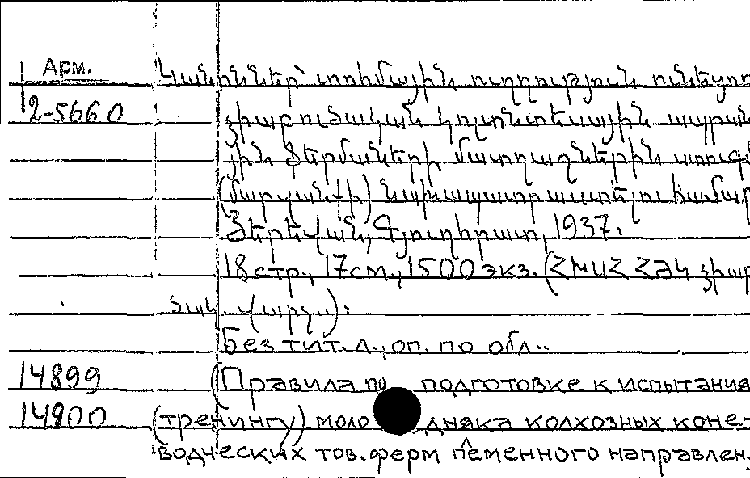 Арм. Կանոններ՝ տոհմային ուղղություն
2-5660 ձիաբուծական կոլտնտեսային ապրան
յին ֆերմաների մատղաշներին
նախապատրաստելու համար
Յերևան, Գյուղհրատ, 1937.
18 стр., 17см., 1500 экз. (ՀԽՍՀ ՀԺԿ ձիաբ
Без тит.л., оп. по обл..
14899 (Правила по подготовке к испытания
14900 (тренингу) молодняка колхозных коне-
водческих тов. ферм племенного направлен.